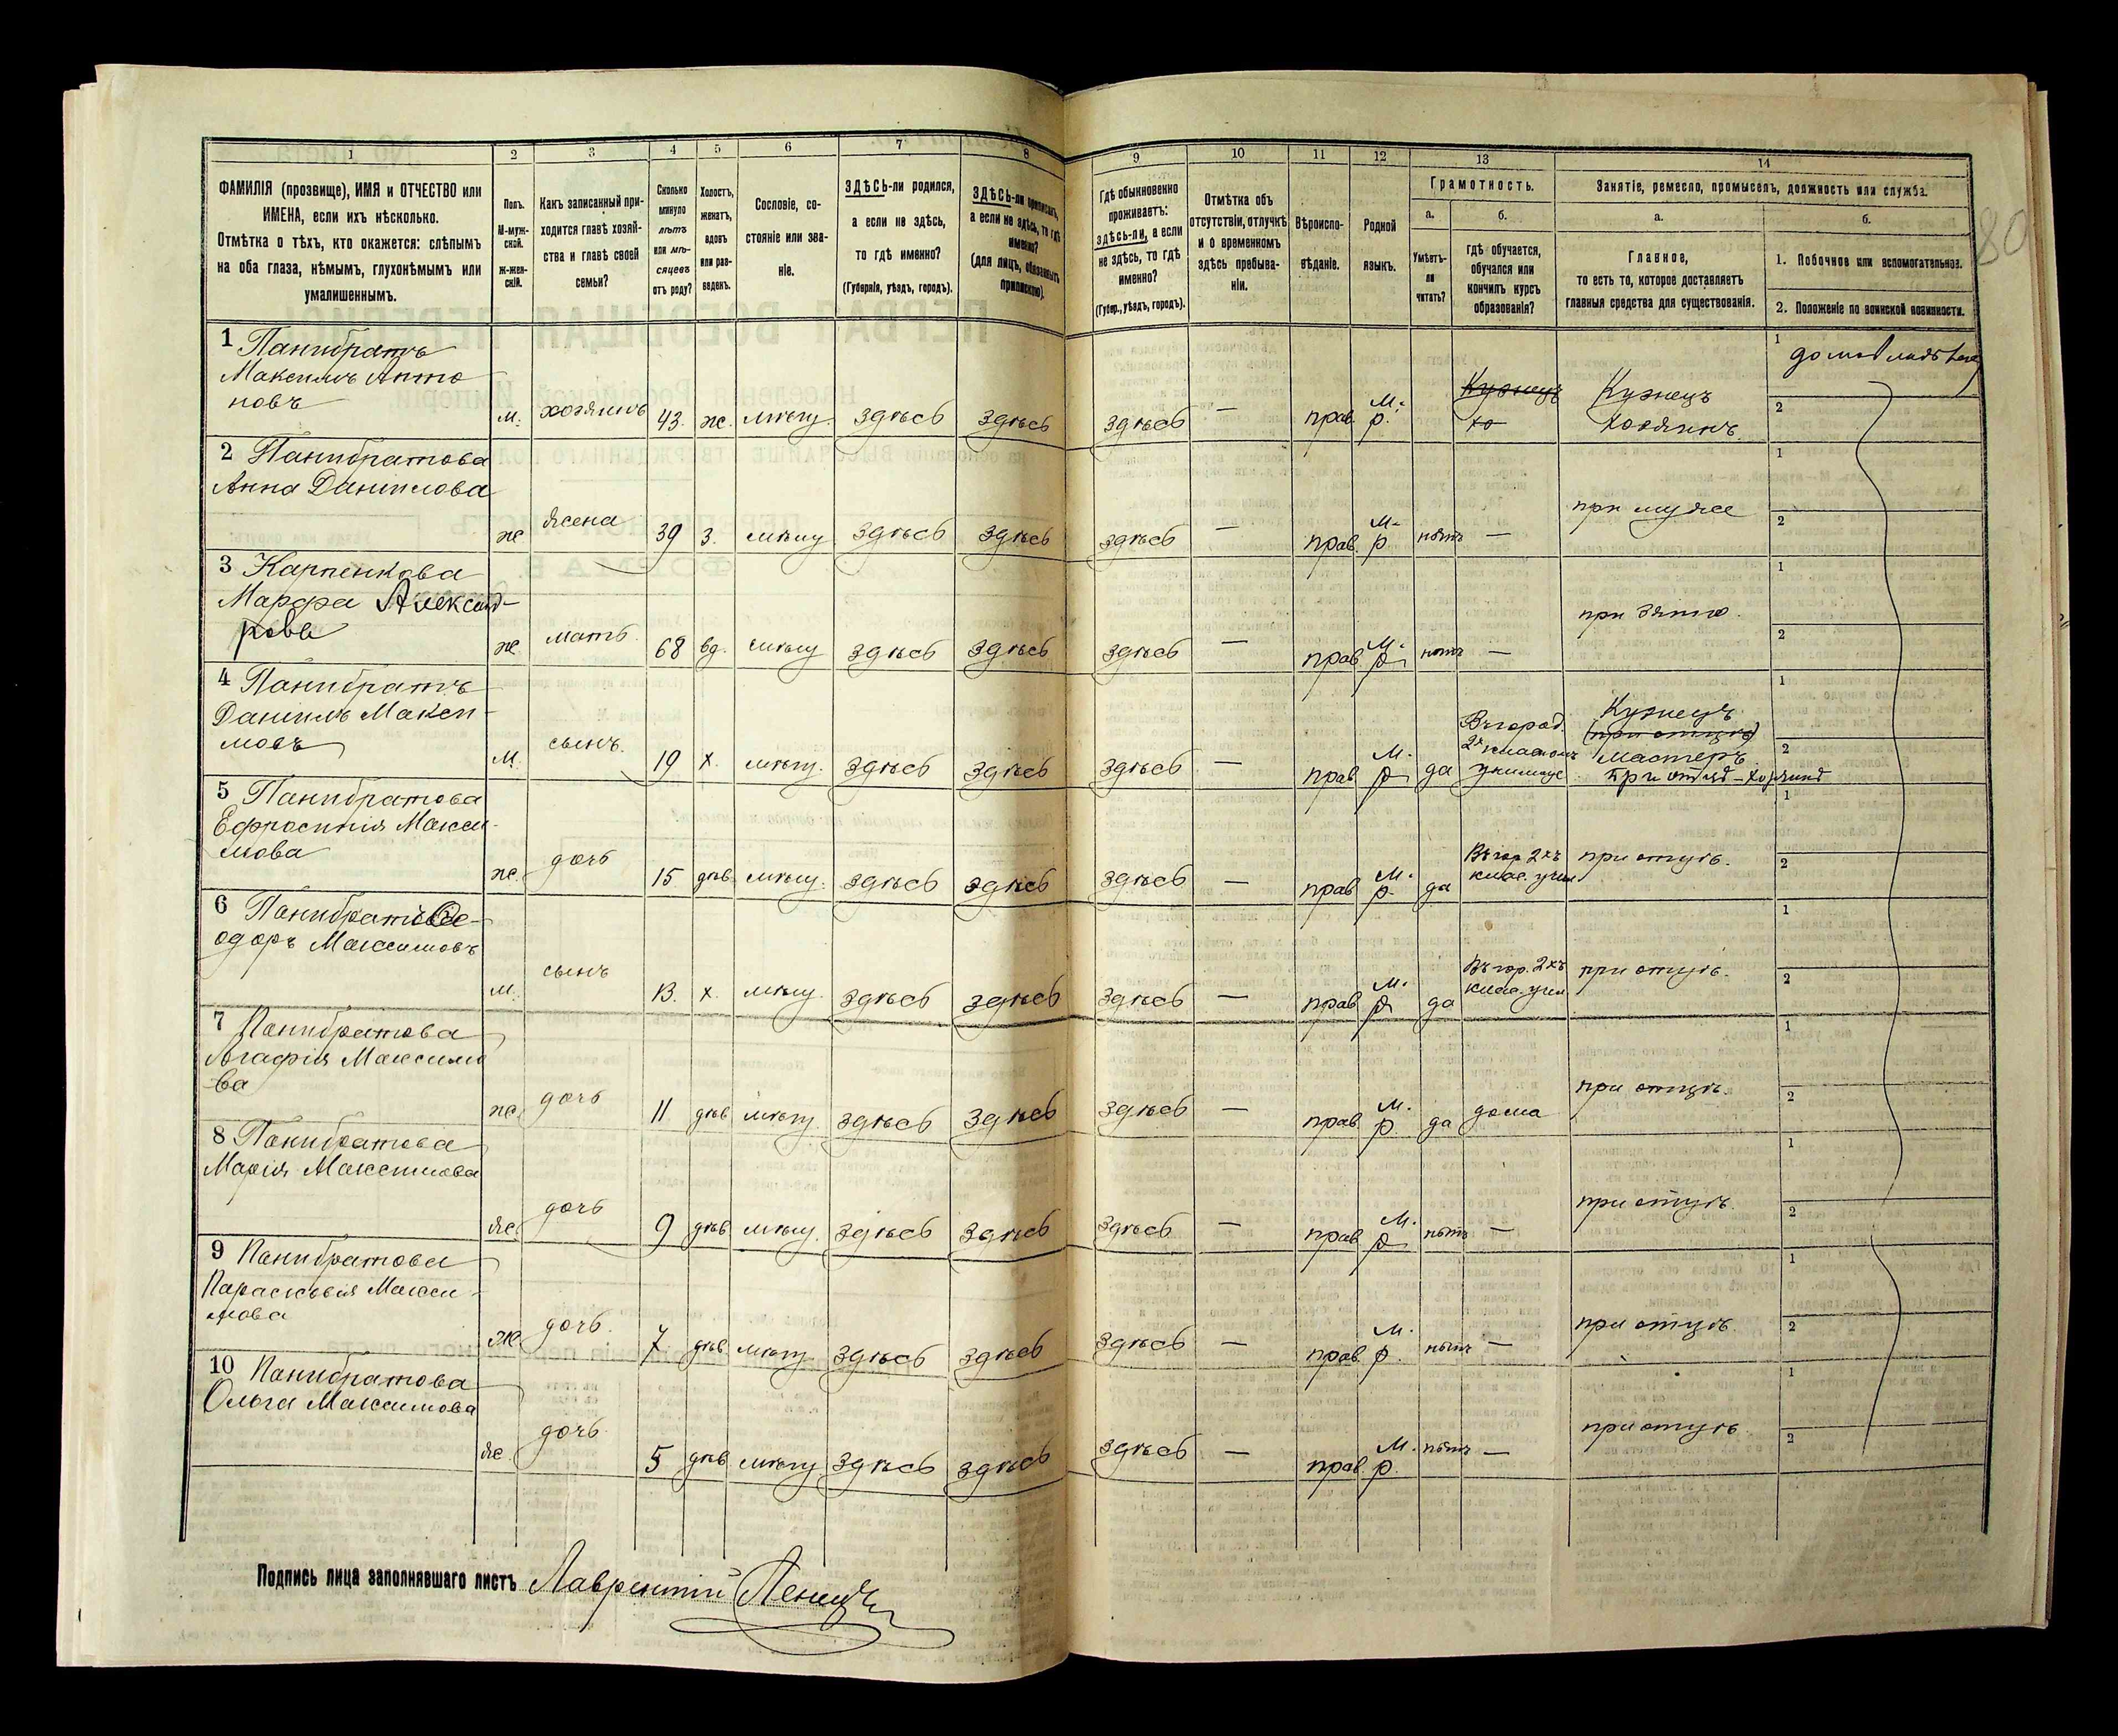 1 2 3 4 5 6 7 8 9 10 11 12 13 14
ФАМИЛІЯ (прозвище), ИМЯ и ОТЧЕСТВО или
ИМЕНА, если ихъ нѣсколько.
Отмѣтка о тѣхъ, кто окажется: слѣпымъ
на оба глаза, нѣмымъ, глухонѣмымъ или
умалишеннымъ.
Полъ.
М-муж-
ской.
ж-жен-
скій.
Какъ записанный при-
ходится главѣ хозяй-
ства и главѣ своей
семьи?
Сколько
минуло
лѣтъ
или мѣ-
сяцевъ
отъ роду?
Холостъ,
женатъ,
вдовъ
или раз-
веденъ.
Сословіе, со-
стояніе или зва-
ніе.
ЗДѢСЬ-ли родился,
а если не здѣсь,
то гдѣ именно?
(Губернія, уѣздъ, городъ).
ЗДѢСЬ-ли приписанъ,
а если не здѣсь, то гдѣ
именно?
(для лицъ, обязанныхъ
припискою).
Гдѣ обыкновенно
проживаетъ:
здѣсь-ли, а если
не здѣсь, то гдѣ
именно?
(Губер., уѣздъ, городъ).
Отмѣтка объ
отсутствіи, отлучкѣ
и о временномъ
здѣсь пребыва-
ніи.
Вѣроиспо-
вѣданіе.
Родной
языкъ.
Грамотность.
а. б.
Умѣетъ-
ли
читать?
Гдѣ обучается,
обучался или
кончилъ курсъ
образованія?
Занятіе, ремесло, промыселъ, должность или служба.
а. б.
Главное,
то есть то, которое доставляетъ
главныя средства для существованія.
1. Побочное или вспомогательное.
2. Положеніе по воинской повинности.
80
1 Панибратъ
Максимъ Анто
новъ
м. хозяинъ 43. ж. мѣщ. здѣсь здѣсь здѣсь — прав. м. р. Кузнецъ хо Кузнецъ
хозяинъ
1
2
2 Панибратова
Анна Данилова
ж жена 39 з. мѣщ здѣсь здѣсь здѣсь — прав. м. р нѣтъ — при мужѣ
1
2
3 Карпенкова
Марфа Александ-
рова
ж мать 68 вд. мѣщ здѣсь здѣсь здѣсь — прав м. р нѣтъ — при зятѣ.
1
2
4 Панибратъ
Даниилъ Макси-
мовъ
м. сынъ. 19 х. мѣщ. здѣсь здѣсь здѣсь — прав м. р да Въ город.
2х класномъ
училище
Кузнецъ
(при отцѣ)
мастеръ
при отцѣ-хозяинѣ
1
2
5 Панибратова
Ефросинія Макси-
мова
ж. дочь 15 дѣв мѣщ. здѣсь здѣсь здѣсь — прав м. р. да Въ гор. 2хъ
клас. учил
при отцѣ.
1
2
6 Панибратъ Ѳе-
одоръ Максимовъ
м. сынъ 13. х. мѣщ. здѣсь здѣсь здѣсь — прав м. р да Въ гор. 2хъ
клас. учил
при отцѣ.
1
2
7 Панибратова
Агафія Максимо
ва
ж. дочь 11 дѣв мѣщ. здѣсь здѣсь здѣсь — прав м. р. да дома при отцѣ.
1
2
8 Панибратова
Марія Максимова
ж. дочь 9 дѣв мѣщ. здѣсь здѣсь здѣсь — прав м. р нѣтъ — при отцѣ.
1
2
9 Панибратова
Параскевія Макси-
мова
ж. дочь. 7 дѣв мѣщ. здѣсь здѣсь здѣсь — прав. м. р. нѣтъ — при отцѣ.
1
2
10 Панибратова
Ольга Максимова
ж дочь. 5 дѣв мѣщ здѣсь здѣсь здѣсь — прав. м. р. нѣтъ — при отцѣ
1
2
Подпись лица заполнявшаго листъ Лаврентій